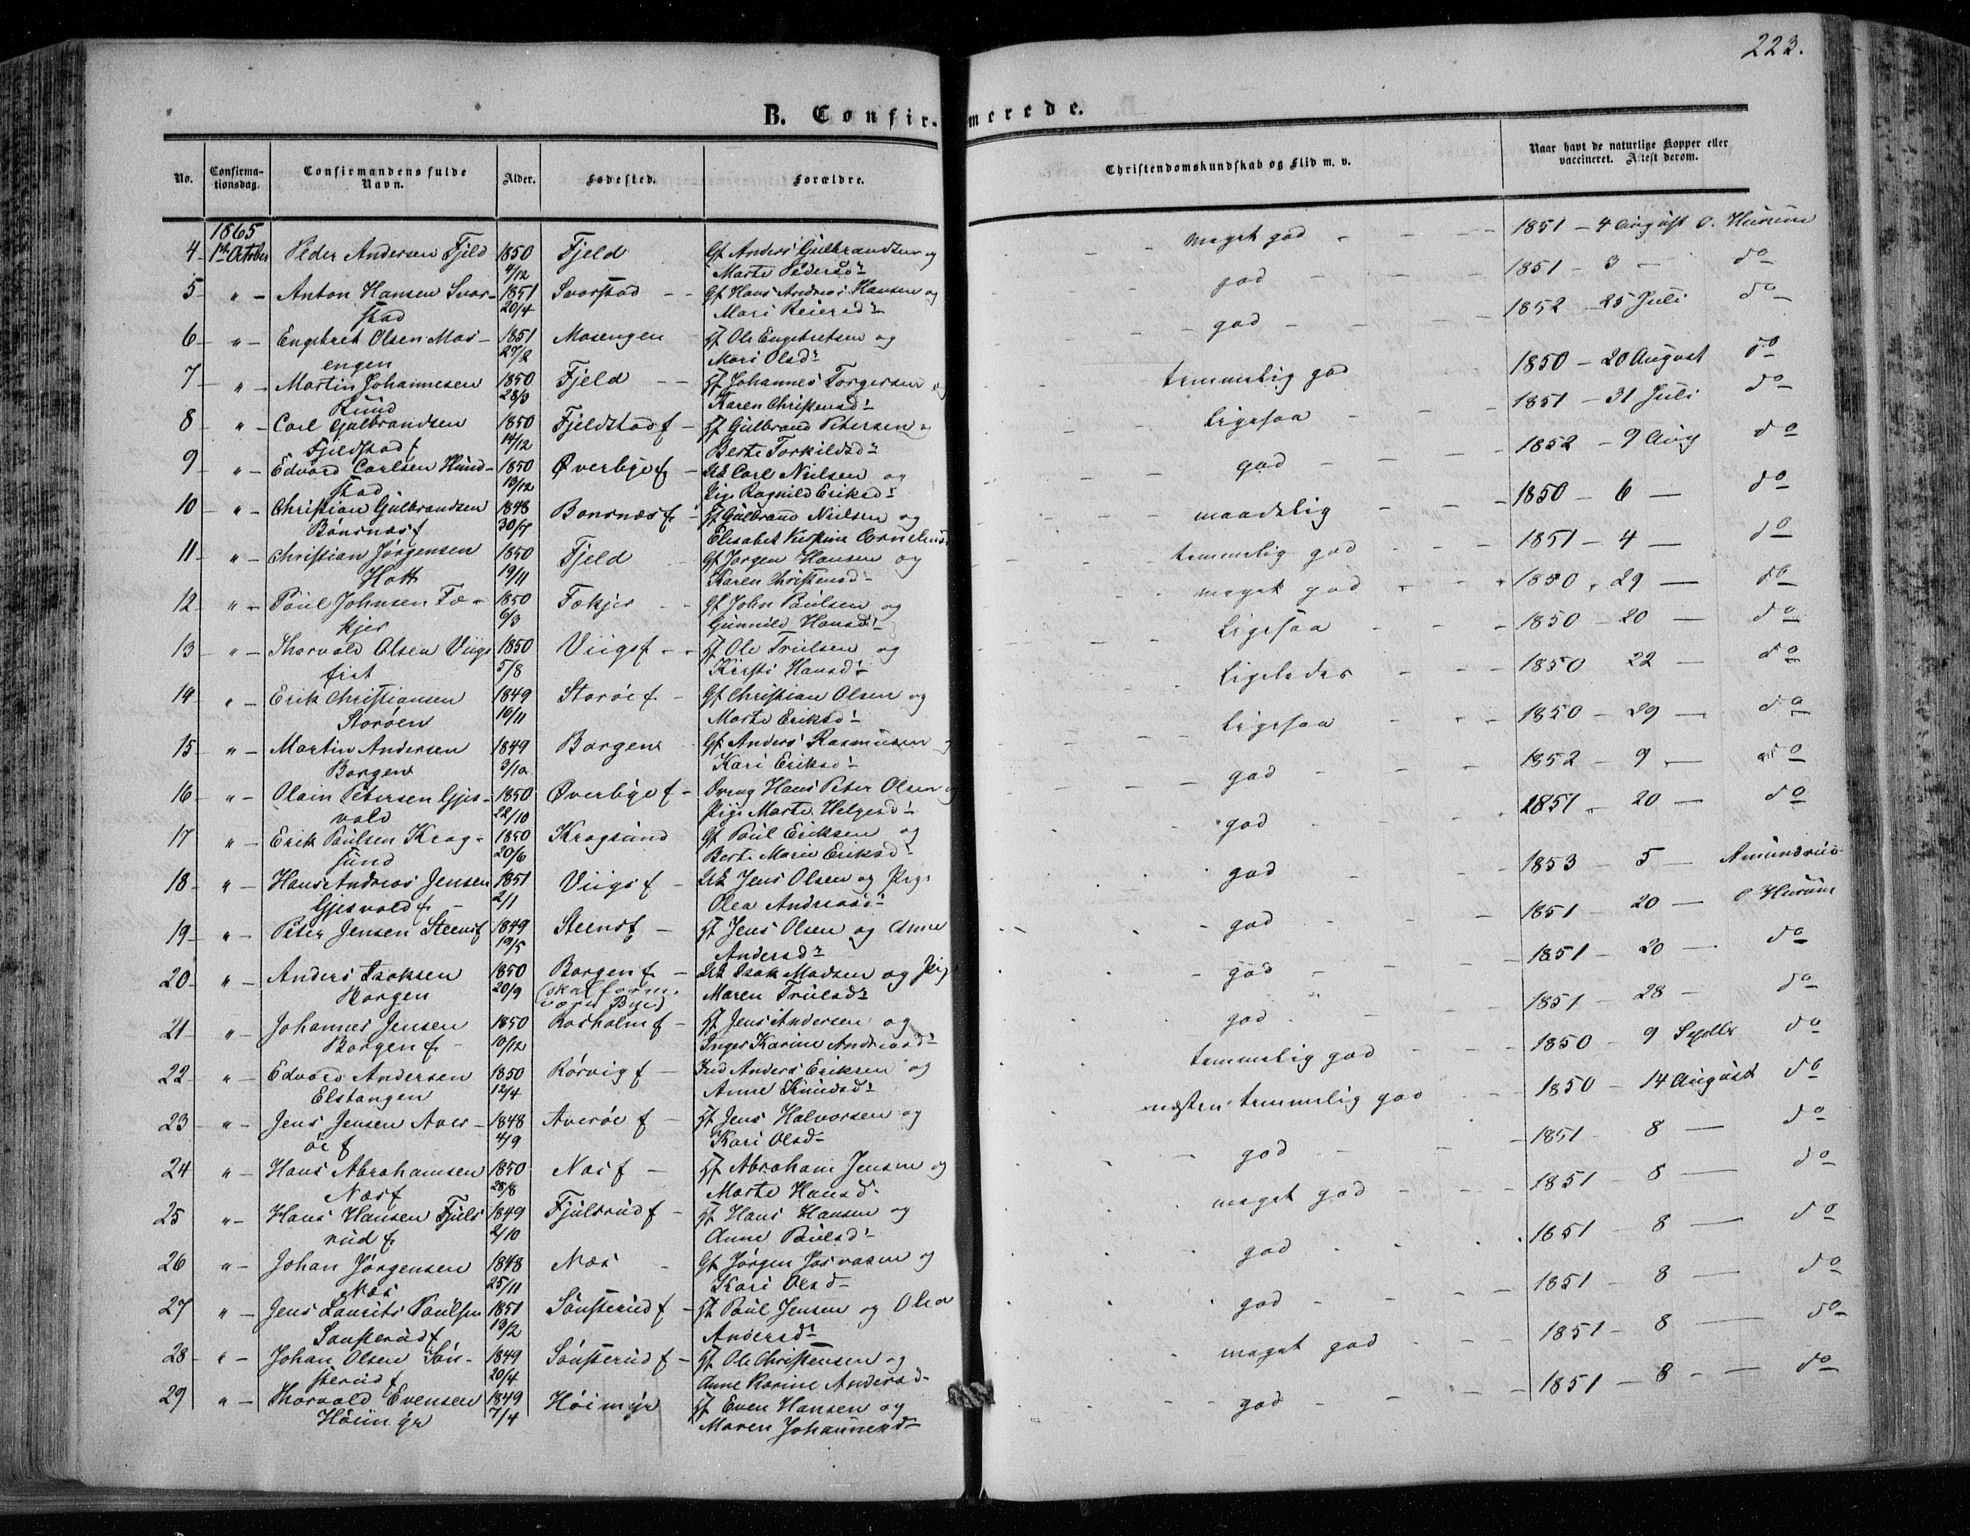 223.
B. Confirmerede.
No. Confirmationsdag. Confirmandens fulde Navn. Alder. Fødested. Forældre. Christendomskundskab og Flid m. v. Naar havt de naturlige Kopper eller vaccineret. Attest derom.
1865
4 1ste October Peder Andersen Fjeld 1850 Fjeld Gf Anders Gulbrandsen og meget god 1851 - 4 August O. Hurum
4/12 Marte Pedersd
5 " Anton Hansen Svor- 1851 Svorstad Gf Hans Andreas Hansen og god 1851 - 3 - do
stad 20/4 Mari Reiersd
6 " Engebret Olsen Mas- 1851 Masengen Hf Ole Engebretsen og god 1852 - 25 Juli do
engen 27/2 Mari Olsd
7 " Martin Johannesen 1850 Fjeld Hf Johannes Torgersen og temmelig god 1850 - 20 August do
Rund 28/3 Karen Christensd
8 " Carl Gulbrandsen 1850 Fjeldstad f Hf Gulbrand Petersen og Ligesaa 1851 - 31 Juli do
Fjeldstad f 14/12 Berte Torkildsd
9 " Edvard Carlsen Hund- 1850 Øverbye f Uk Carl Nielsen og god 1852 - 9 Aug do
stad 13/12 Pige Ragnild Eriksd
10 " Christian Gulbrandsen 1848 Bønsnæs f Hf Gulbrand Nielsen og maadelig 1850 - 6 - do
Bønsnæs f 30/7 Elisabet Kirstine Cornelius
11 " Christian Jørgensen 1850 Fjeld Gf Jørgen Hansen og temmelig god 1851 - 4 - do
Hott 19/11 Karen Christensd
12 " Paul Johnsen Fæ- 1850 Fækjer Gf John Paulsen og meget god 1850 - 29 - do
kjer 6/3 Gunnild Hansd
13 " Thorvald Olsen Viigs 1850 Viigs f Hf Ole Trulsen og Ligesaa 1850 - 20 - do
fiet 5/8 Kirsti Hansd
14 " Erik Christiansen 1849 Storøe f Gf Christian Olsen og Ligeledes 1850 22 - do
Storøen 16/11 Marte Eriksd
15 " Martin Andersen 1849 Borgen Gf Anders Rasmusen og Ligesaa 1850 - 29 - do
Borgen 3/10 Kari Eriksd
16 " Olain Petersen Gjes- 1850 Øverbye f Dreng Hans Peter Olsen og god 1852 - 9 - do
vold 22/10 Pige Marte Helgesd
17 " Erik Paulsen Krog- 1850 Krogsund Gf Paul Eriksen og god 1851 - 20 - do
sund 20/6 Berte Marie Eriksd
18 " Hans Andreas Jensen 1851 Viigs f Uk Jens Olsen og Pige god 1853 - 5 - Amundrus
Gjesvold f 2/1 Olea Andreasd
19 " Peter Jensen Steens f 1849 Steens f Hf Jens Olsen og Anne god 1851 - 20 - O Hurum
19/5 Andersd
20 " Anders Isaksen 1850 Borgen f Uk Isak Madsen og Pige god 1851 - 20 - do
Borgen 20/9 (skal Maren Trulsd
21 " Johannes Jensen 1850 Rosholm f Hf Jens Andersen og god 1851 - 28 - do
Borgen f 10/12 Inger Karine Andreasd
22 " Edvard Andersen 1850 Rørvig f Ind Anders Eriksen og temmelig god 1850 - 9 Septbr do
Elstangen 12/4 Anne Knudsd
23 " Jens Jensen Aver- 1848 Averøe f Hf Jens Halvorsen og næsten temmelig god 1850 - 14 August do
øe f 4/9 Kari Olsd
24 " Hans Abrahamsen 1850 Næs f Hf Abraham Jensen og god 1851 - 8 - do
Næs f 28/8 Marte Hansd
25 " Hans Hansen Fjuls 1849 Fjulsrud f Hf Hans Hansen og meget god 1851 - 8 - do
rud f 2/10 Anne Paulsd
26 " Johan Jørgensen 1848 Næs Gf Jørgen Josvasen og god 1851 - 8 - do
Næs 25/11 Kari Olsd
27 " Jens Laurits Paulsen 1851 Sønsterud f Hf Paul Jensen og Olea god 1851 - 8 - do
Sønsterud f 13/2 Andersd
28 " Johan Olsen Søn- 1849 Sønsterud f Hf Ole Christensen og meget god 1851 - 8 - do
sterud f 20/4 Anne Karine Andersd
29 " Thorvald Evensen 1849 Høimyr Hf Even Hansen og god 1851 - 8 - do
Høimyr 7/4 Maren Johannesd